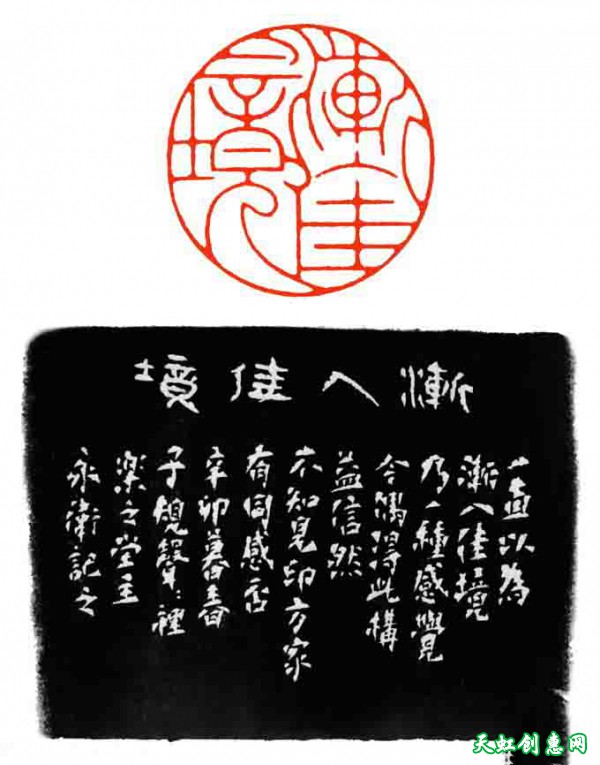 漸入佳境
漸入佳境
一直以為
漸入佳境
乃一種感覺
今偶得此構
益信然
不知見印方家
有同感否
辛卯暮春
子規聲聲裡
樂之堂主
永衛記之
天虹创惠网